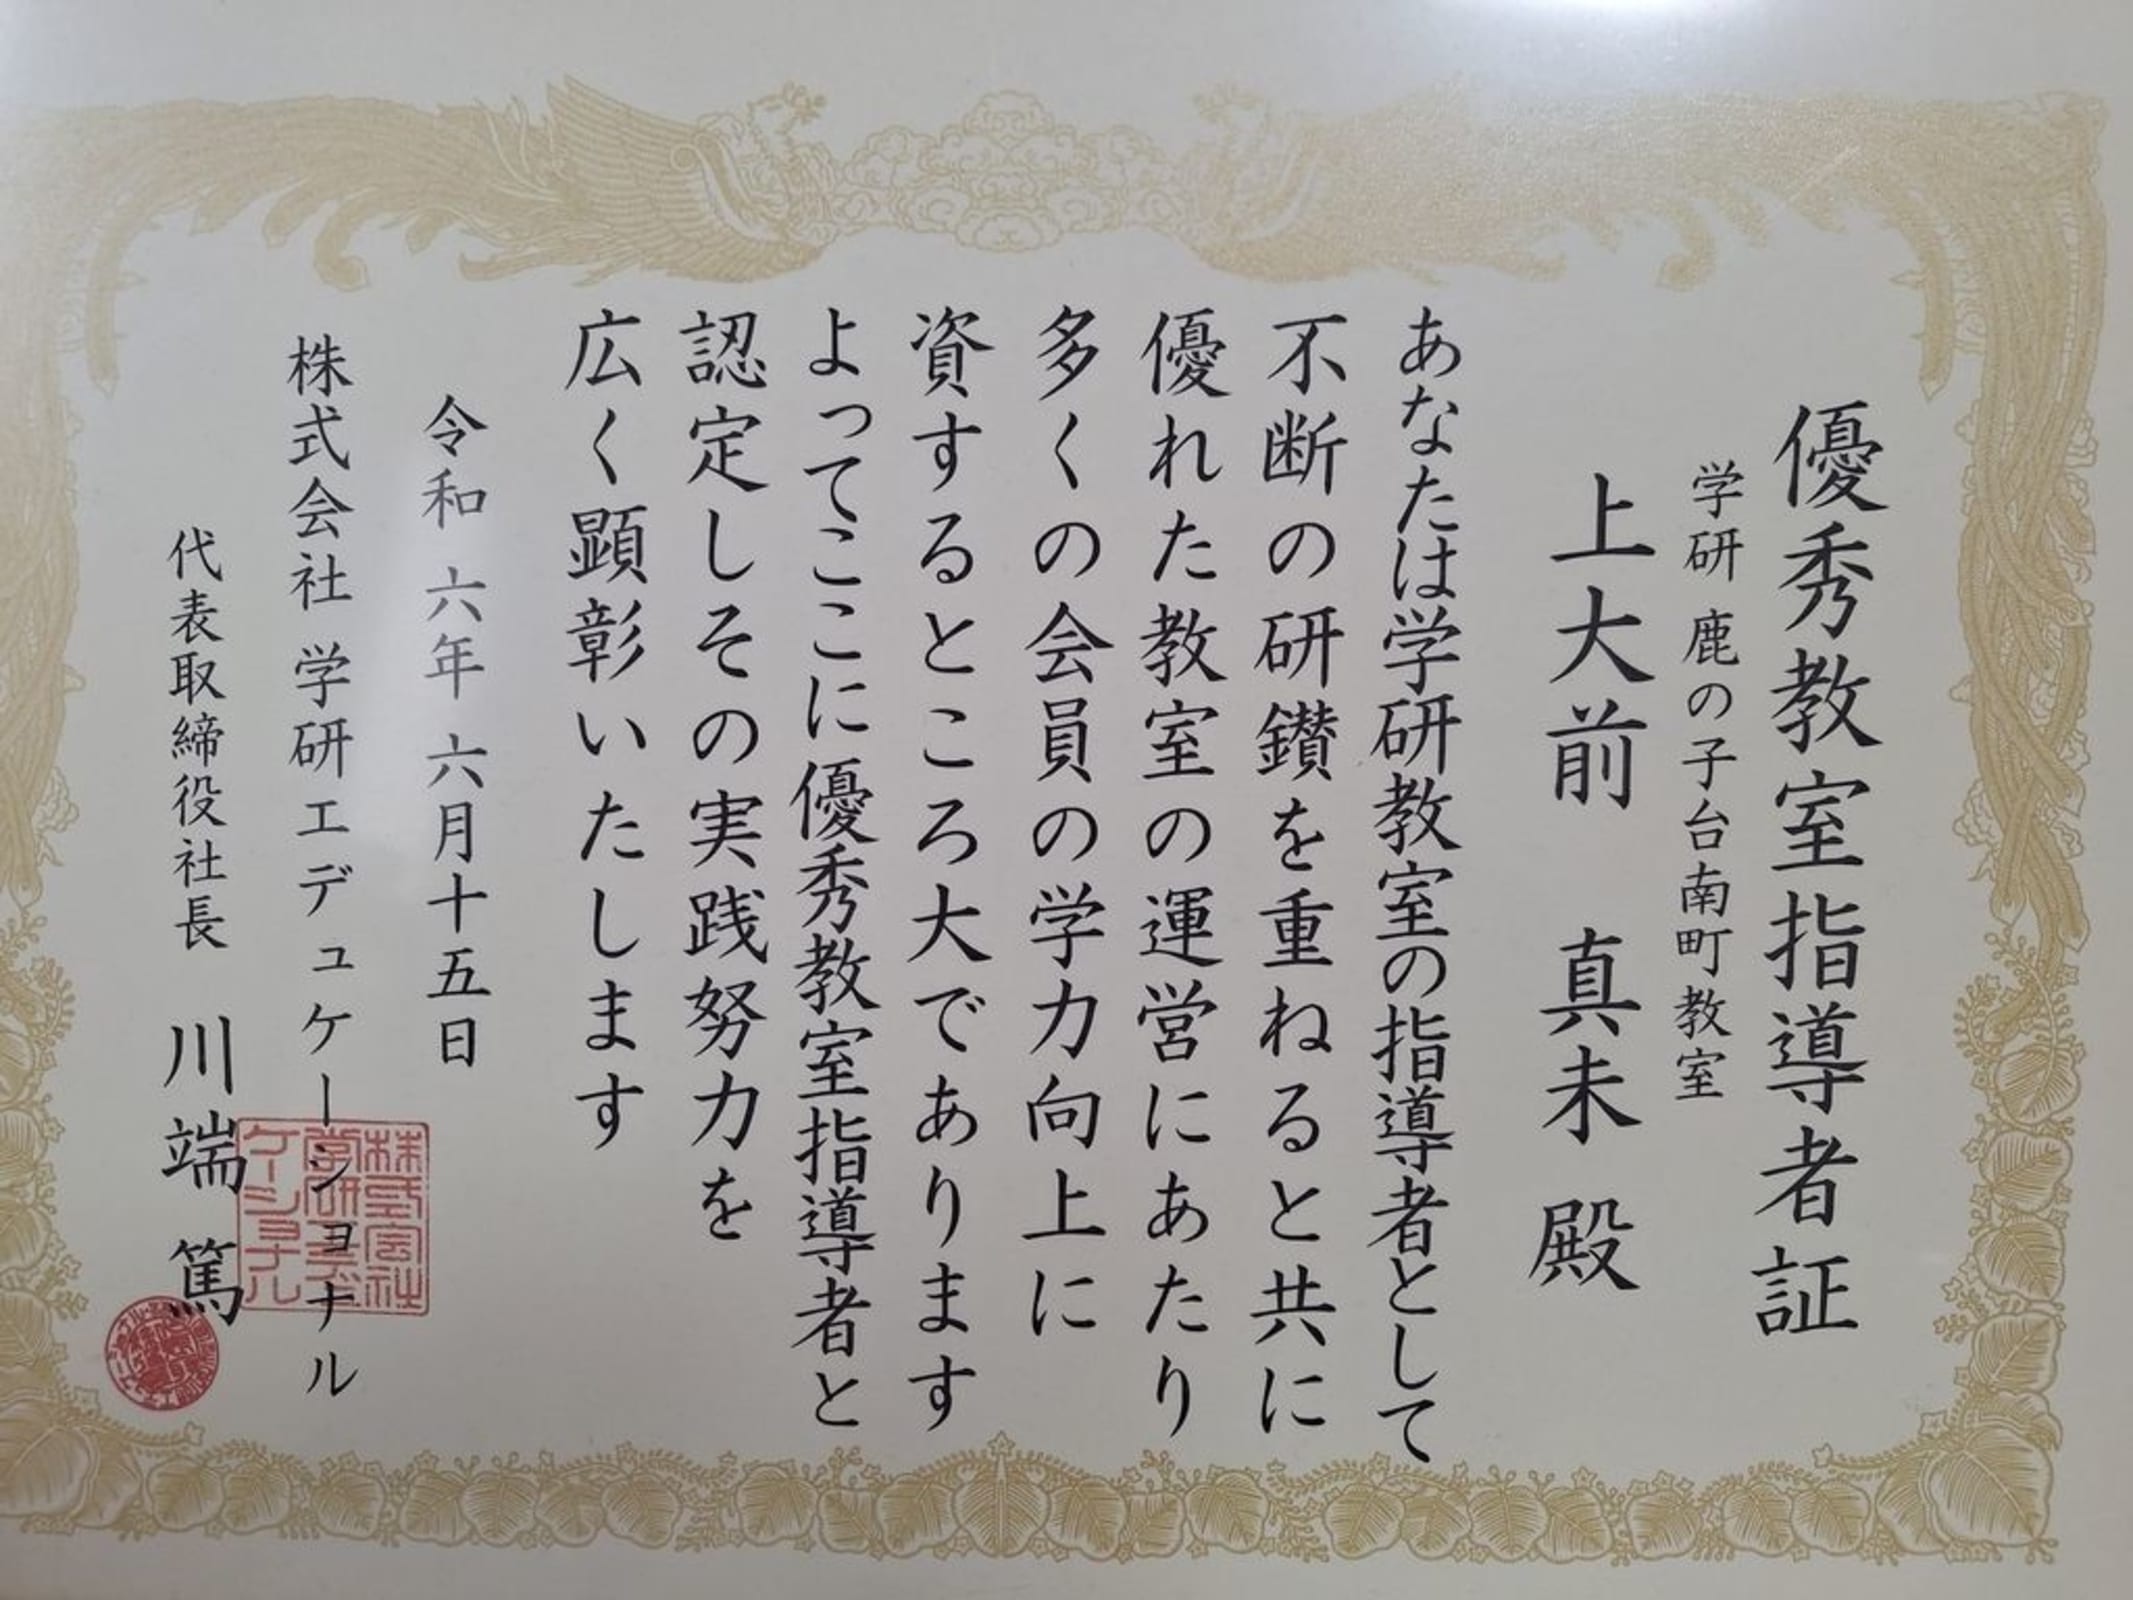 優秀教室指導者証
学研 鹿の子台南町教室
上大前 真未 殿
あなたは学研教室の指導者として
不断の研鑚を重ねると共に
優れた教室の運営にあたり
多くの会員の学力向上に
資するところ大であります
よってここに優秀教室指導者と
認定しその実践努力を
広く顕彰いたします
令和 六年 六月十五日
株式会社 学研エデュケーショナル
代表取締役社長 川端 篤
株式会社
学研エデュ
ケーショナル